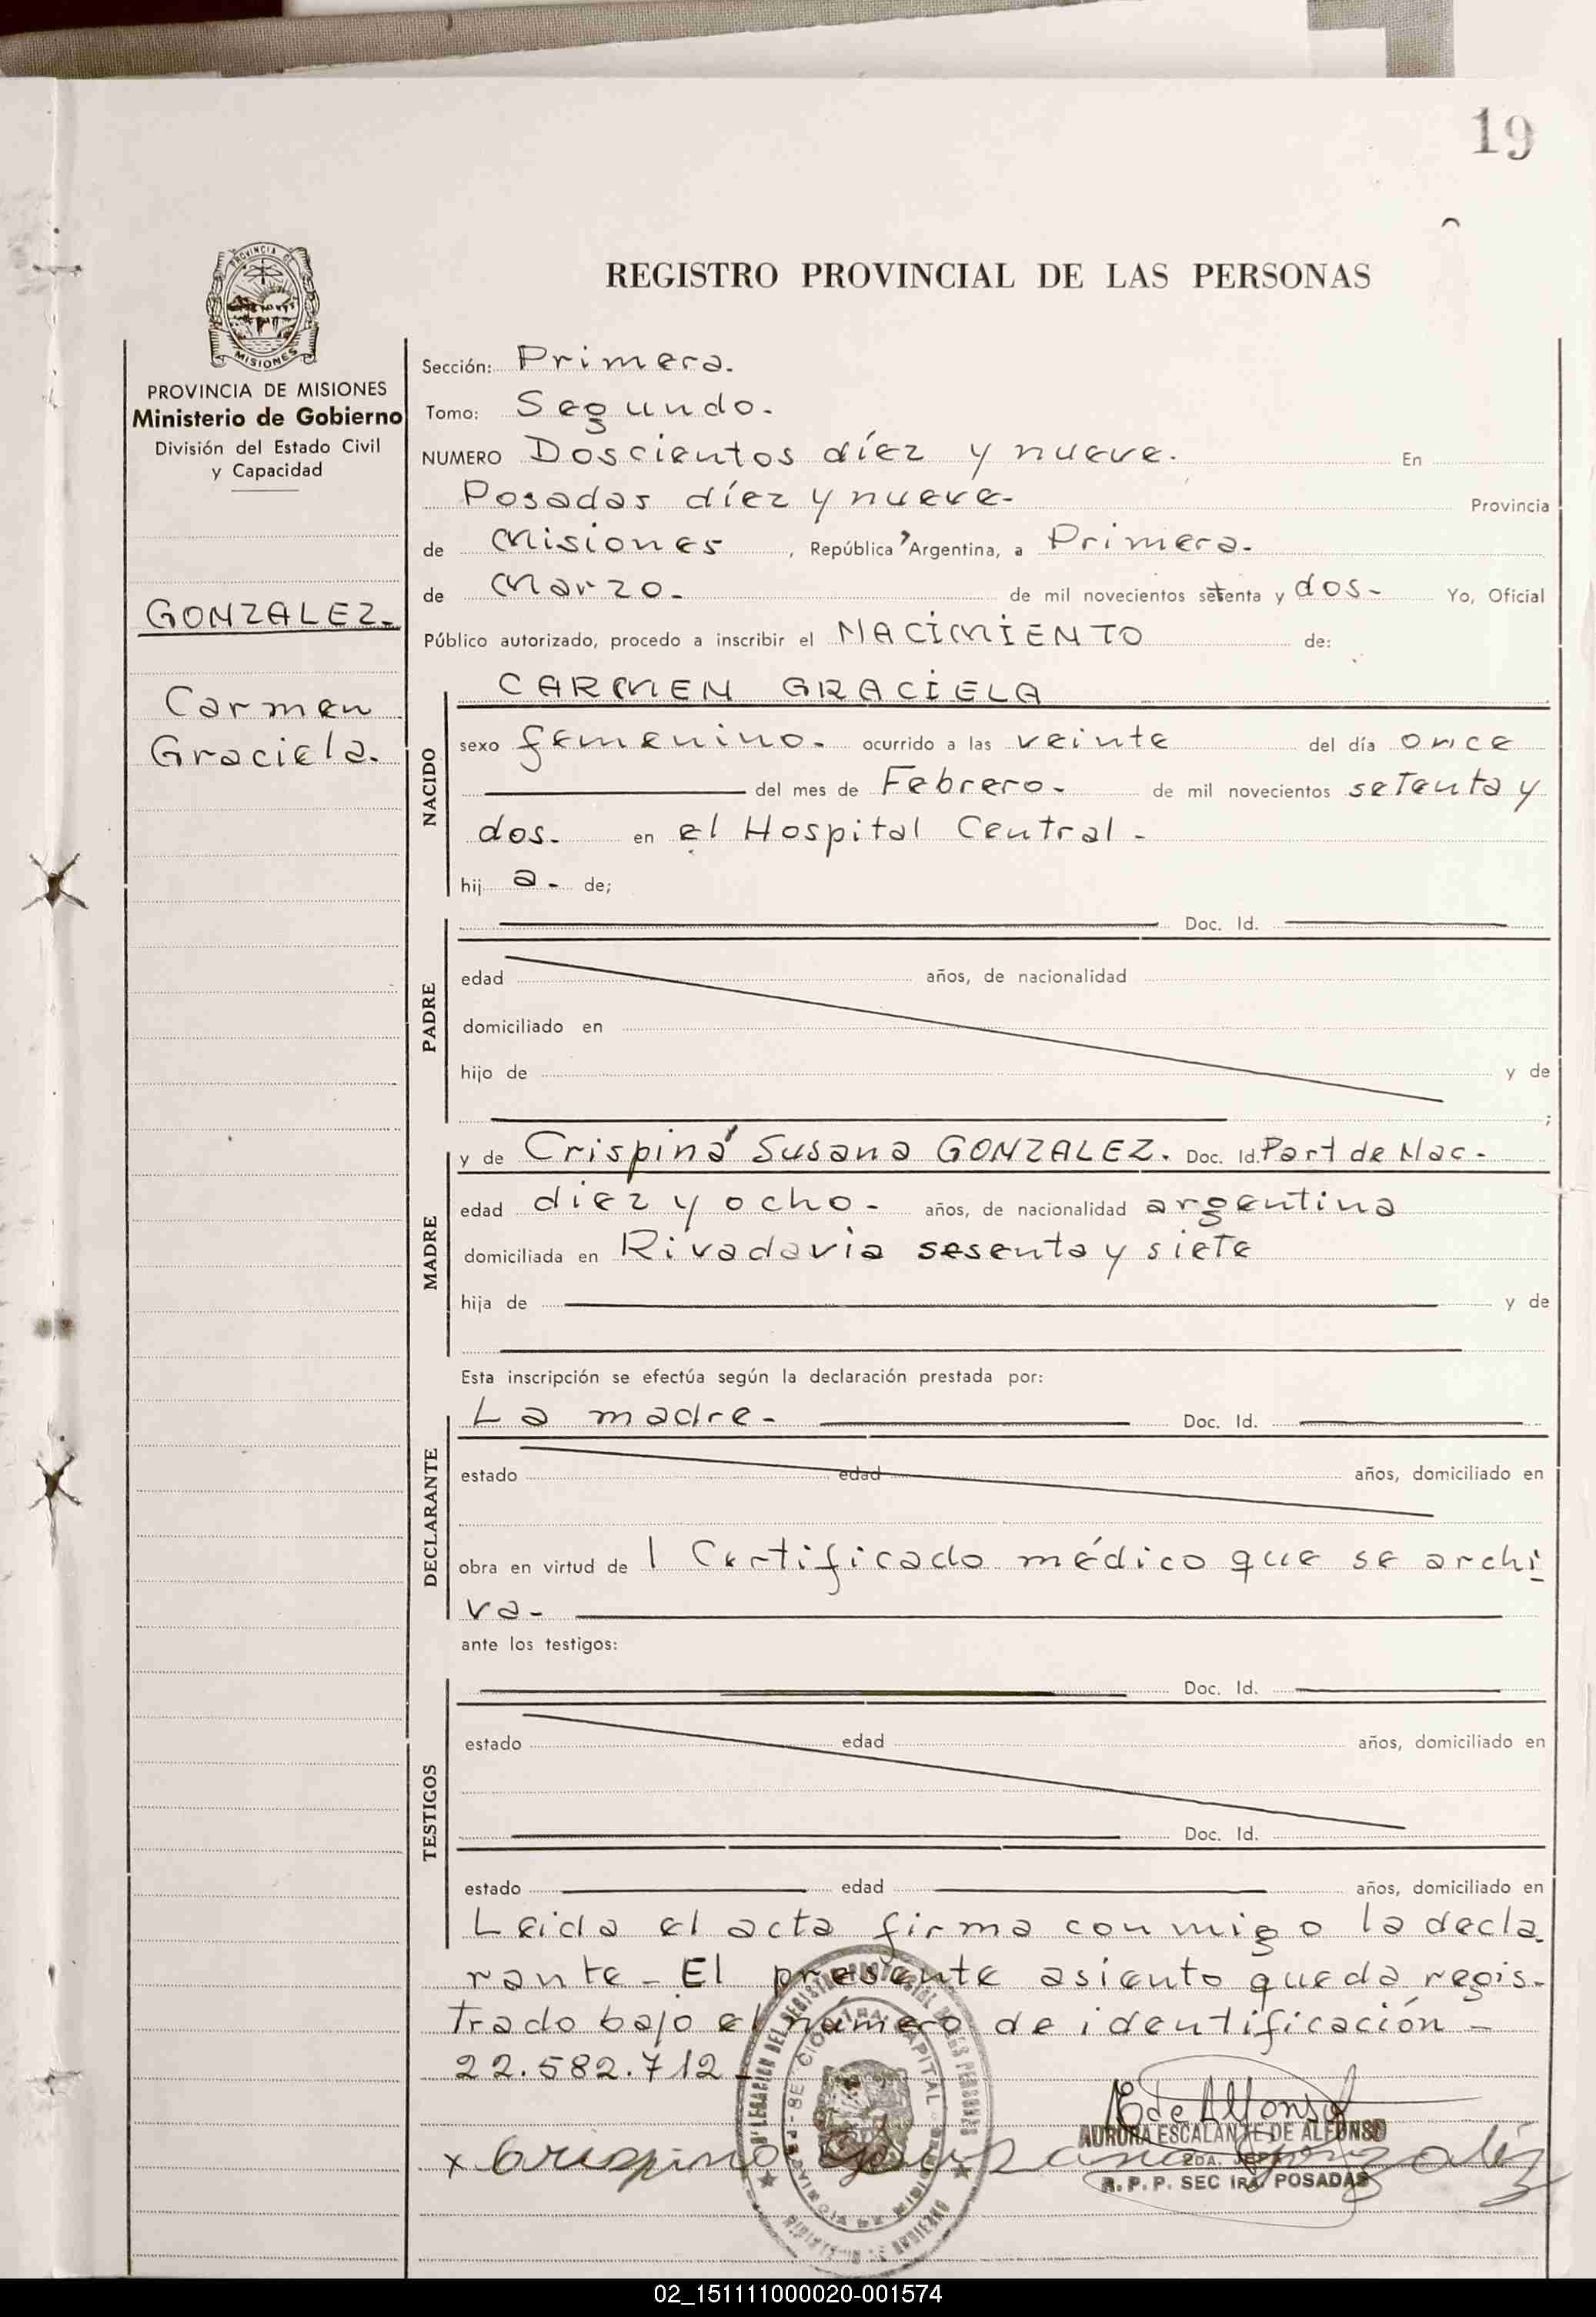 19
PROVINCIA DE
MISIONES
PROVINCIA DE MISIONES
Ministerio de Gobierno
División del Estado Civil
y Capacidad
GONZALEZ-
Carmen
Graciela.
REGISTRO PROVINCIAL DE LAS PERSONAS
Sección: Primera.
Tomo: Segundo.
NUMERO Doscientos díez y nueve. En
Posadas díez y nueve- Provincia
de Misiones, República Argentina, a Primera.
de Marzo. de mil novecientos setenta y dos- Yo, Oficial
Público autorizado, procedo a inscribir el NACIMIENTO de:
NACIDO
CARMEN GRACIELA
sexo femenino. ocurrido a las veinte del día once
del mes de Febrero. de mil novecientos setenta y
dos. en el Hospital Central.
hij a. de;
PADRE
Doc. Id.
edad años, de nacionalidad
domiciliado en
hijo de y de
;
MADRE
y de Crispina Susana GONZALEZ. Doc. Id. Part de Nac.
edad diez y ocho. años, de nacionalidad argentina
domiciliada en Rivadavia sesenta y siete
hija de y de
Esta inscripción se efectúa según la declaración prestada por:
DECLARANTE
La madre. Doc. Id.
estado edad años, domiciliado en
obra en virtud de 1 Certificado médico que se archi
va-
ante los testigos:
TESTIGOS
Doc. Id.
estado edad años, domiciliado en
Doc. Id.
estado edad años, domiciliado en
Leida el acta firma conmigo la decla
rante- El presente asiento queda regis-
trado bajo el número de identificación-
22.582.712-
E de Alfonso
AURORA ESCALANTE DE ALFONSO
2DA. JEFE
R.P.P. SEC 1RA. POSADAS
x Crispina Susana Gonzalez
02_151111000020-001574